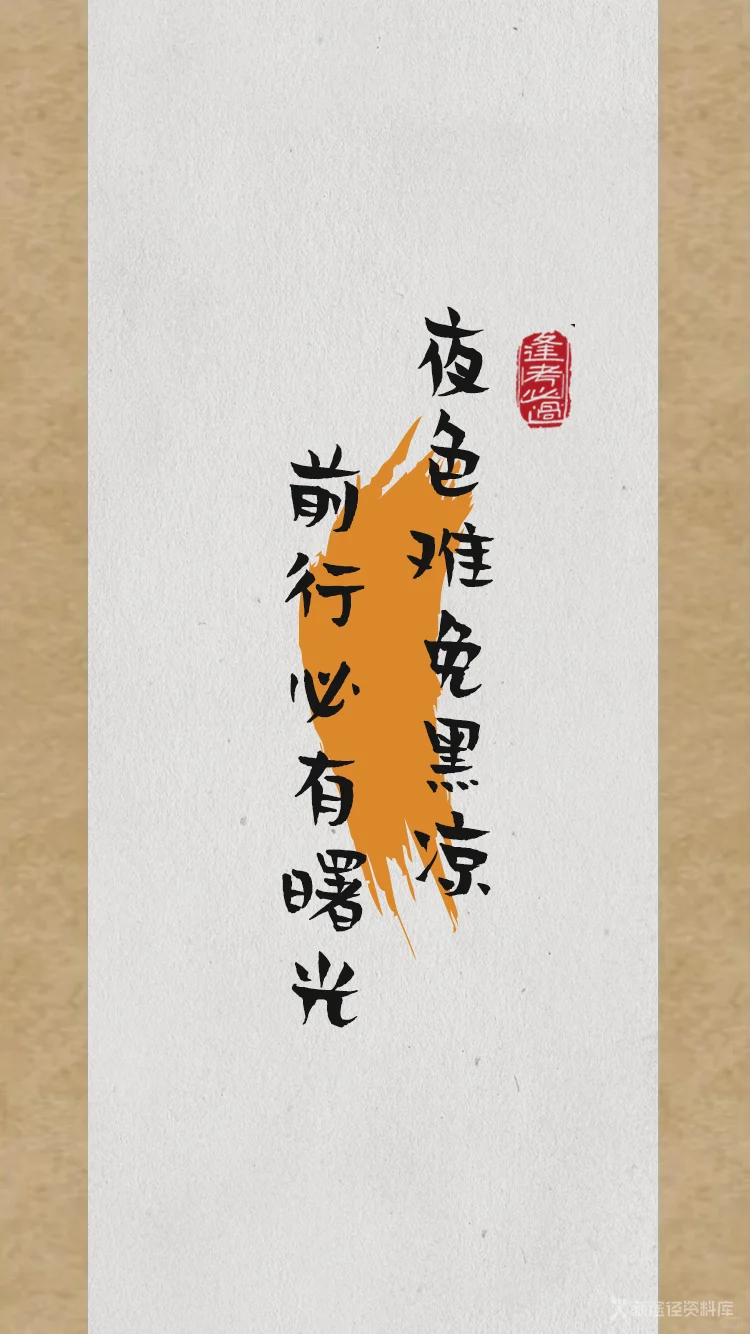 夜色难免黑凉
前行必有曙光
逢考必过
新途径资料库